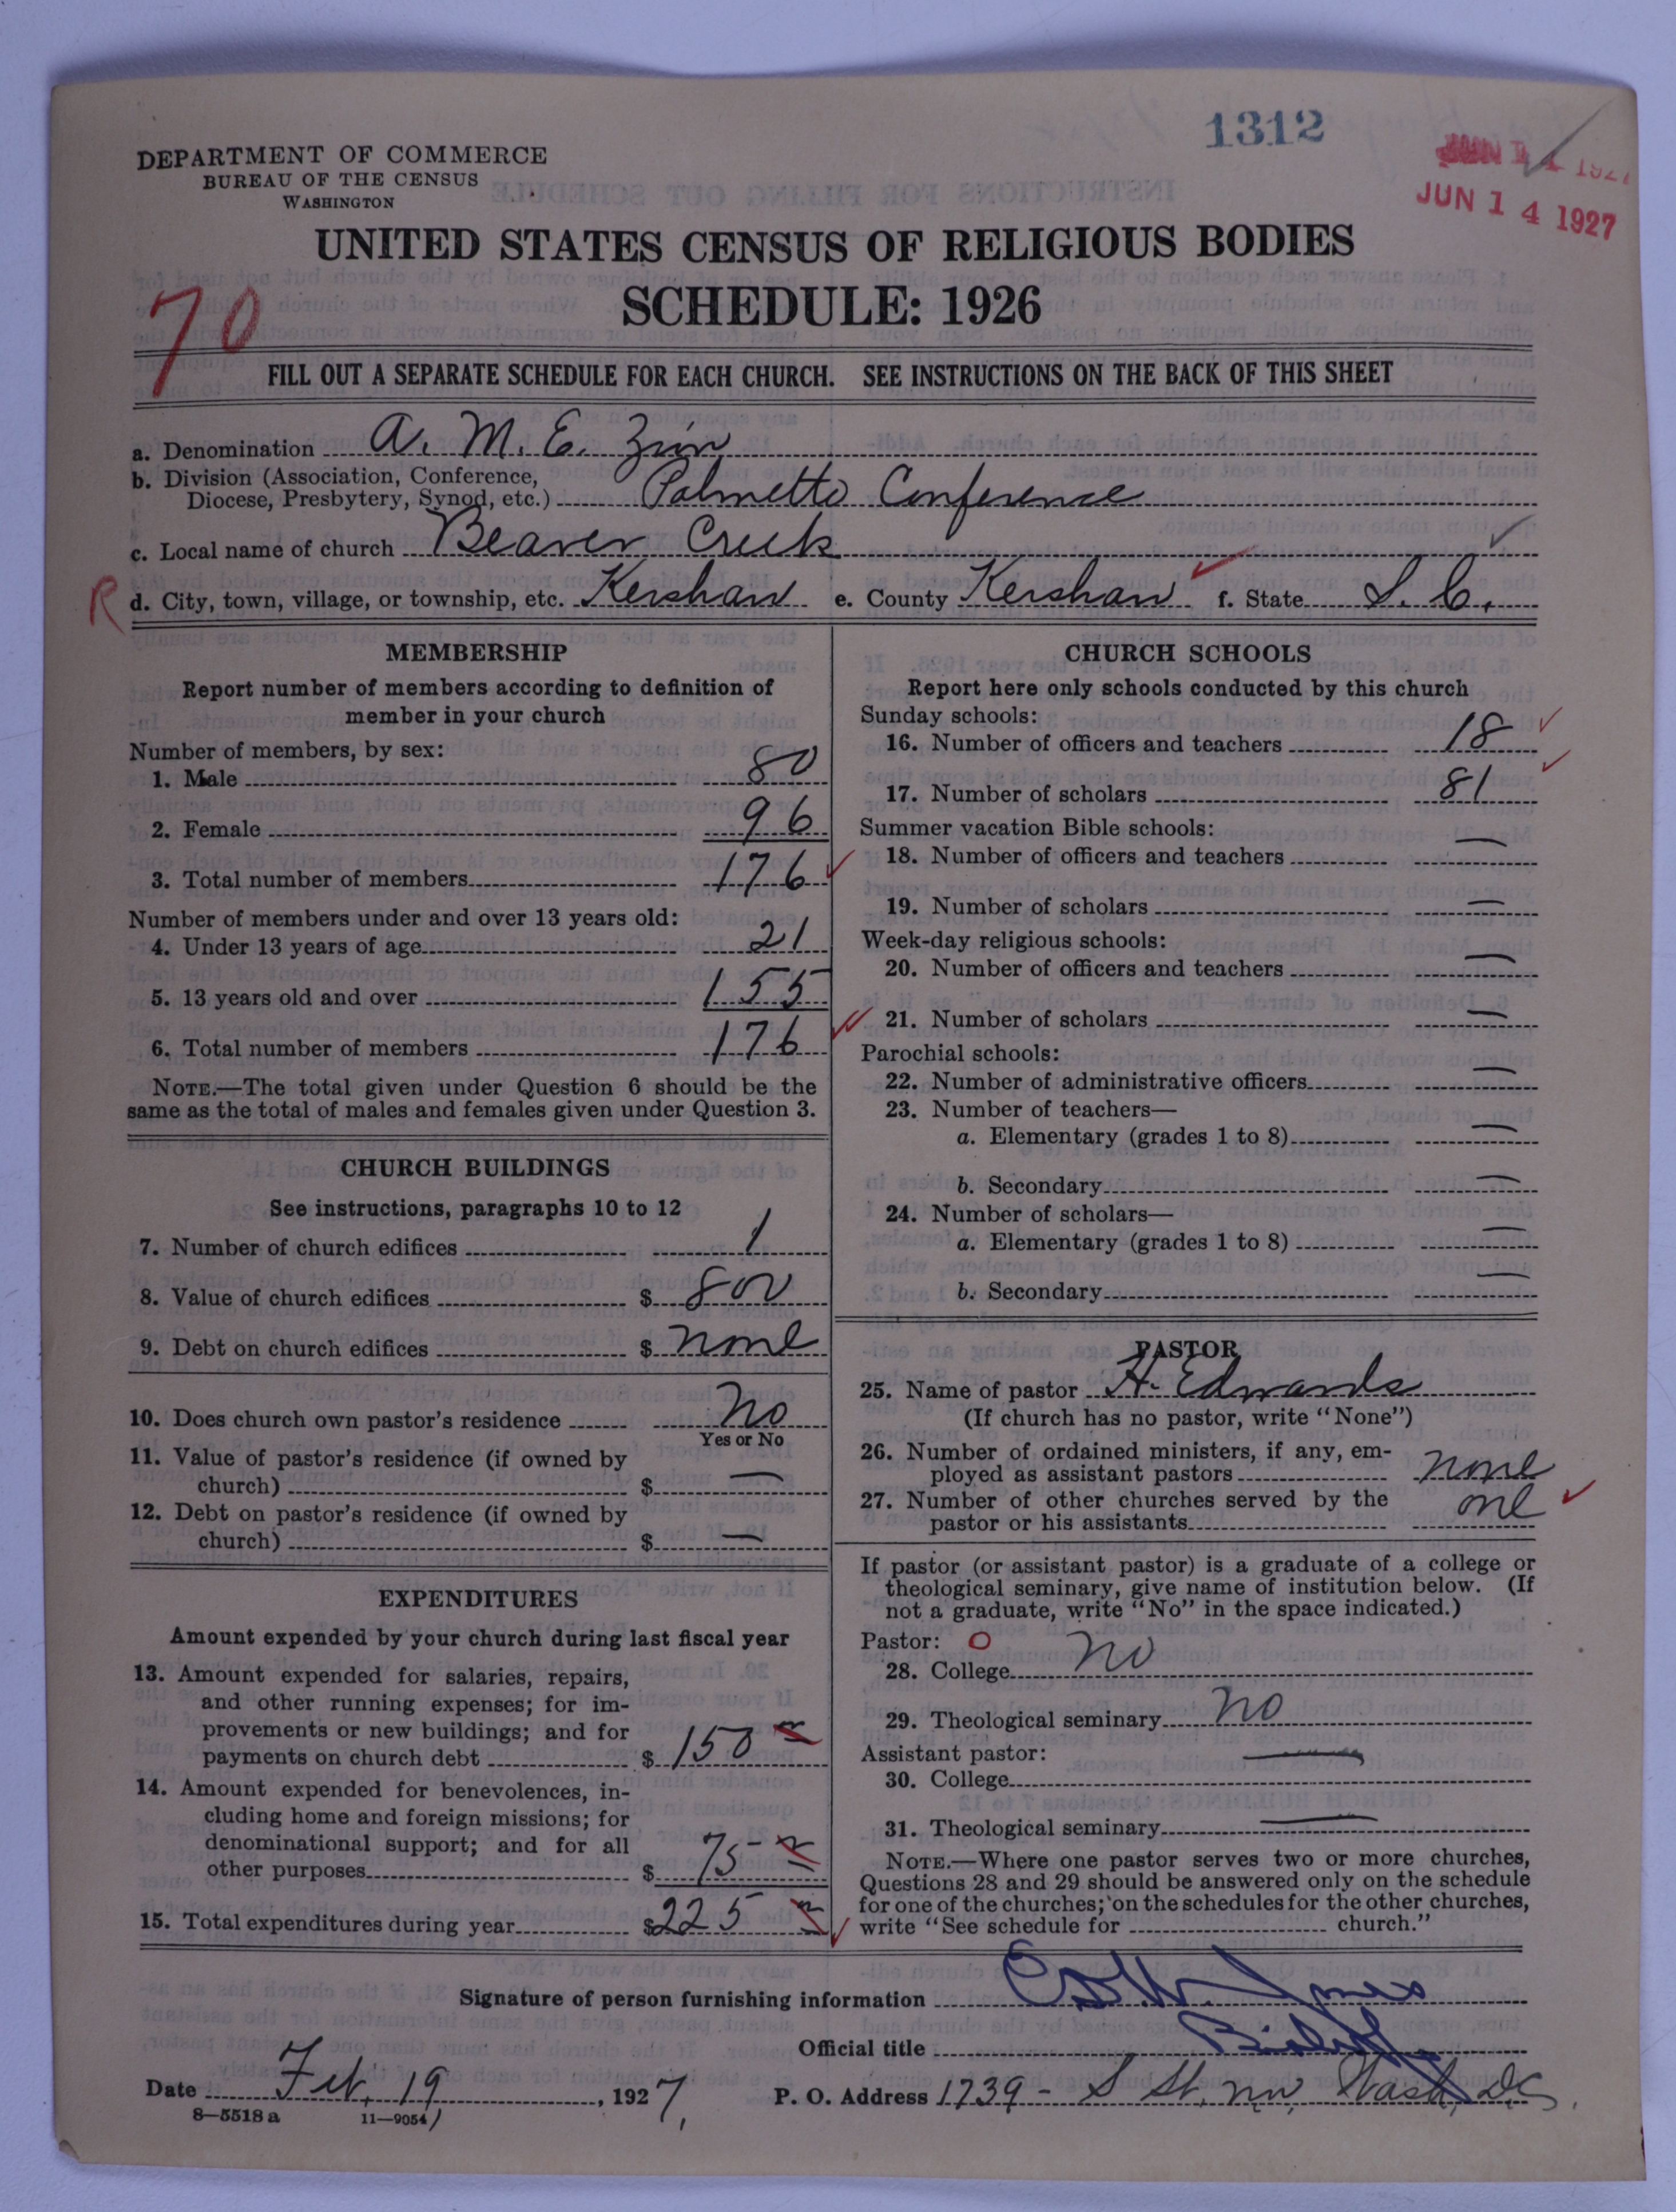 1312
JUN 14 1927
DEPARTMENT OF COMMERCE
BUREAU OF THE CENSUS
WASHINGTON
UNITED STATES CENSUS OF RELIGIOUS BODIES
SCHEDULE: 1926
70
FILL OUT A SEPARATE SCHEDULE FOR EACH CHURCH. SEE INSTRUCTIONS ON THE BACK OF THIS SHEET
a. Denomination A. M. E. Zion
b. Division (Association, Conference,
Diocese, Presbytery, Synod, etc.) Palmetto Conference
c. Local name of church Beaver Creek
R d. City, town, village, or township, etc. Kershaw e. County Kershaw f. State S. C.
MEMBERSHIP
Report number of members according to definition of
member in your church
Number of members, by sex:
1. Male 80
2. Female 96
3. Total number of members 176
Number of members under and over 13 years old:
4. Under 13 years of age 21
5. 13 years old and over 155
6. Total number of members 176
NOTE.—The total given under Question 6 should be the
same as the total of males and females given under Question 3.
CHURCH BUILDINGS
See instructions, paragraphs 10 to 12
7. Number of church edifices 1
8. Value of church edifices $ 800
9. Debt on church edifices $ none
10. Does church own pastor's residence No
Yes or No
11. Value of pastor's residence (if owned by
church) $ —
12. Debt on pastor's residence (if owned by
church) $ —
EXPENDITURES
Amount expended by your church during last fiscal year
13. Amount expended for salaries, repairs,
and other running expenses; for im-
provements or new buildings; and for
payments on church debt $ 150
14. Amount expended for benevolences, in-
cluding home and foreign missions; for
denominational support; and for all
other purposes $ 75
15. Total expenditures during year $ 225
CHURCH SCHOOLS
Report here only schools conducted by this church
Sunday schools:
16. Number of officers and teachers 18
17. Number of scholars 81
Summer vacation Bible schools:
18. Number of officers and teachers —
19. Number of scholars —
Week-day religious schools:
20. Number of officers and teachers —
21. Number of scholars —
Parochial schools:
22. Number of administrative officers —
23. Number of teachers—
a. Elementary (grades 1 to 8) —
b. Secondary —
24. Number of scholars—
a. Elementary (grades 1 to 8) —
b. Secondary —
PASTOR
25. Name of pastor H. Edwards
(If church has no pastor, write "None")
26. Number of ordained ministers, if any, em-
ployed as assistant pastors none
27. Number of other churches served by the
pastor or his assistants one
If pastor (or assistant pastor) is a graduate of a college or
theological seminary, give name of institution below. (If
not a graduate, write "No" in the space indicated.)
Pastor: O
28. College no
29. Theological seminary no
Assistant pastor:
30. College —
31. Theological seminary —
NOTE.—Where one pastor serves two or more churches,
Questions 28 and 29 should be answered only on the schedule
for one of the churches; on the schedules for the other churches,
write "See schedule for church."
Signature of person furnishing information Jones
Official title Bishop
Date Feb. 19, 1927, P. O. Address 1739 - S St. NW. Wash, D.C.
8—5518a 11—9054